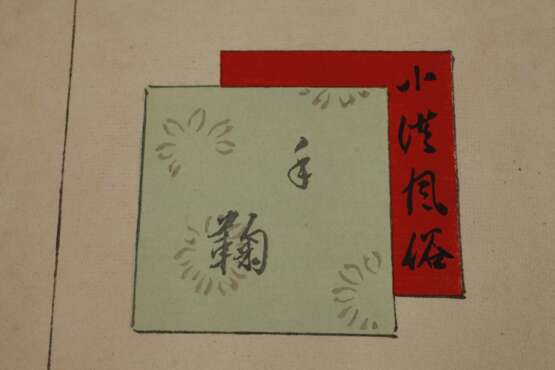 小供風俗
手鞠